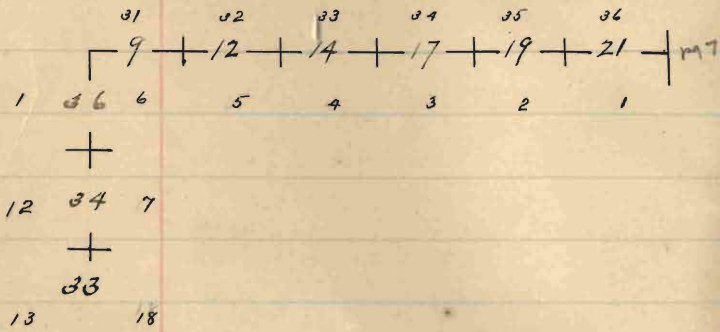 31 32 33 34 35 36
9 12 14 17 19 21 m7
1 36 6 5 4 3 2 1
12 34 7
33
13 18